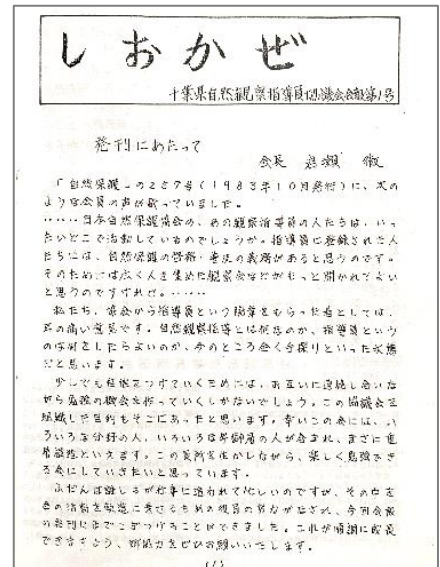 しおかぜ
千葉県自然観察指導員協議会会報第1号
発刊にあたって
会長 岩瀬 徹
「自然保護」の257号(1983年10月発行)に、次の
ような会員の声が載っていました。
……日本自然保護協会の、あの観察指導員の人たちは、いっ
たいどこで活動しているのでしょうか。指導員に登録された人
たちには、自然保護の啓蒙・普及の義務があると思うのです。
そのためには広く人を集めた観察会などがもっと開かれてよい
と思うのですけれど。……
私たち、協会から指導員という腕章をもらった者としては、
耳の痛い意見です。自然観察指導とは何なのか、指導員という
のは何をしたらよいのか、今のところ全く手探りといった状態
だと思います。
少しでも経験をつずていくためには、お互いに連絡し合いな
がら勉強の機会を作っていくしかないでしょう。この協議会を
組織した目的もそこにあったと思います。幸いこの会には、い
ろいろな分野の人、いろいろな年齢層の人が含まれ、まさに
といえます。この長所を生かしながら、楽しく勉強でき
る会にしていきたいと思っています。
ふだんは誰しもが仕事に追われて忙しいのですが、その中を
会の活動を軌道に乗せるための役員の努力がなされ、今回会報
の発刊にまでこぎつけることができました。これが順調に成長
できますよう、御協力をぜひお願いいたします。
(1)